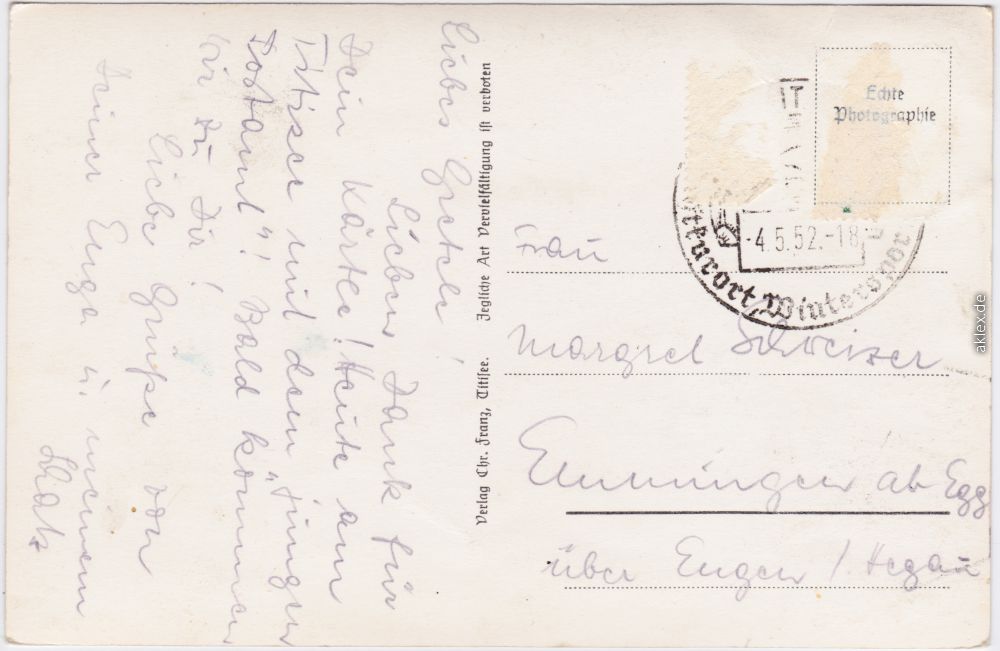 Liebes Gretele!
Lieben Dank für
Dein Kärtle! Heute am
Titisee mit dem "jungen
Bald kommen
wir zu Dir!
Liebe Grüße von
Deiner Euga u. meinem
Schatz
Verlag Chr. Franz, Titisee. Jegliche Art Vervielfältigung ist verboten
Echte
Photographie
-4.5.52.-18
kurort, Winterspor
Frau
Margret Schweizer
Emmingen ab Egg
über Engen / Hegau
aklex.de